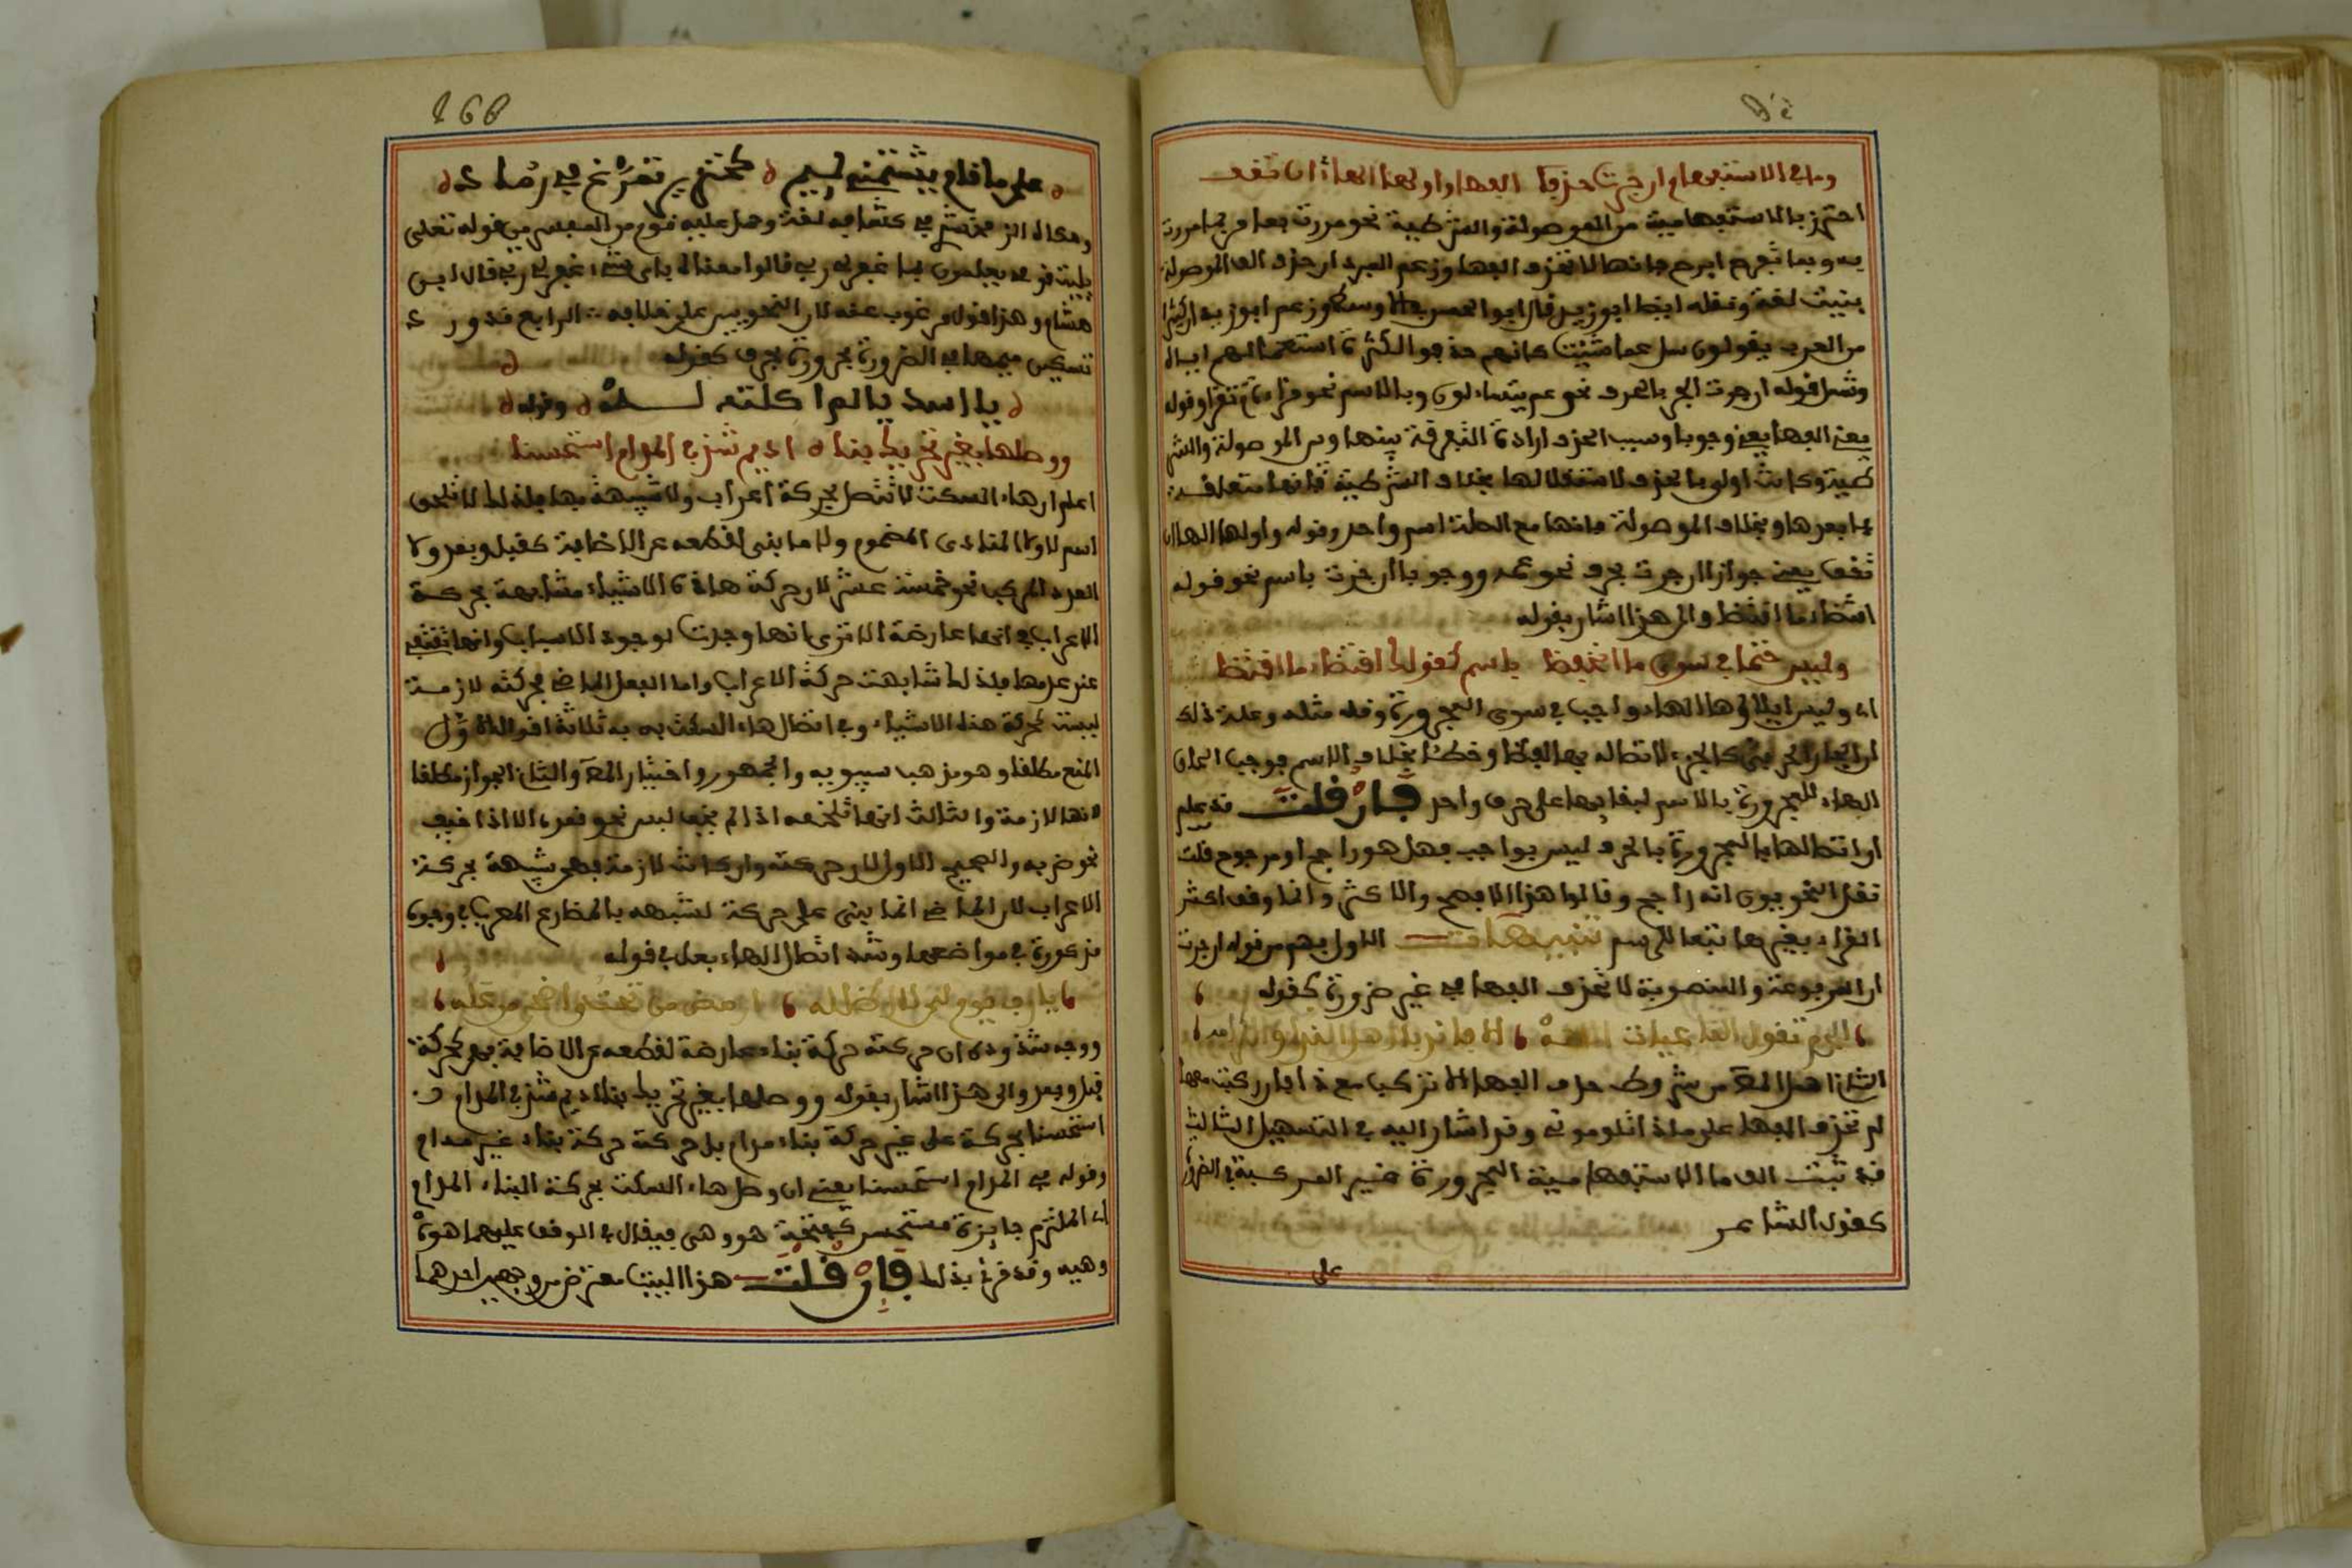 وما في الاستفهام ان جرت حذف الفها واولها الها ان تقف
احترز بالاستفهامية من الموصولة والشرطية نحو مررت بما مررت
به وبما تفرح افرح فانها لا تحذف الفها وزعم المبرد ان حذف الف الموصولة
بشئت لغة ونقله ايضا ابو زيد قال ابو الحسن وزعم ابو زيد ان كثيرا
من العرب يقولون سل عم شئت كانهم حذفوا لكثرة استعمالهم اياه
وشمل قوله ان جرت الجر بالحرف نحو عم يتساءلون وبالاسم نحو قراءة م تقرا وقوله
حذف الفها يعني وجوبا وسبب الحذف ارادة التفرقة بينها وبين الموصولة والشر
طية وكانت اولى بالحذف لاستقلالها بخلاف الشرطية فانها متعلقة
بما بعدها وبخلاف الموصولة فانها مع الصلة اسم واحد وقوله واولها الها ان
تقف يعني جوازا ان جرت بحرف نحو عمه ووجوبا ان جرت باسم نحو قوله
اقتضاء م اقتضى والى هذا اشار بقوله
وليس حتما في سوى ما انخفضا باسم كقولك اقتضاء م اقتضى
اي وليس ايلاؤها الهاء واجبا في سوى المجرورة وقد مثله وعلة ذلك
ان الجار الحرفي كالجزء لاتصاله بها لفظا وخطا بخلاف الاسم فوجب الحاق
الهاء للمجرورة بالاسم لبقايها على حرف واحد فان قلت قد علم
ان اتصالها بالمجرورة بالحرف ليس بواجب فهل هو راجح او مرجوح قلت
نقل النحويون انه راجح وقالوا هذا الافصح والاكثر وانما وقف اكثر
القراء بغيرها تبعا للرسم تنبيهات الاول يفهم من قوله ان جرت
ان المرفوعة والمنصوبة لا تحذف الفها في غير ضرورة كقوله
الثاني اهمل المص من شروط حذف الفها الا تركب مع ذا فان ركبت معها
لم تحذف الفها على ماذا تلومونني وقد اشار اليه في التسهيل الثالث
قد تثبت الف ما الاستفهامية المجرورة غير المركبة في الضرورة
كقول الشاعر
على
168
على ما قام يشتمني لئيم كخنزير تمرغ في رماد
وحكاه الزمخشري في كشافه لغة وحمل عليه قوم من المفسرين قوله تعالى
يليت قومي يعلمون بما غفر لي ربي قالوا معناه باي شيء غفر لي ربي قال ابن
هشام وهذا قول مرغوب عنه لان النحويين على خلافه الرابع قد ورد
تسكين ميمها في الضرورة مجرورة بحرف كقوله
يا اسد يا لم اكلته لمه وقوله
ووصلها بغير تحريك بنا اديم شذ في المدام استحسنا
اعلم ان هاء السكت لا تتصل بحركة اعراب ولا شبيهة بها فلذلك لا تلحق
اسم لا ولا المنادى المضموم ولا ما بني لقطعه عن الاضافة كقبل وبعد ولا
العدد المركب نحو خمسة عشر لان حركة هاذه الاشياء مشابهة بحركة
الاعراب في انها عارضة الا ترى انها وجدت لوجود الاسباب وانها تنتفي
عند عدمها فلذلك شابهت حركة الاعراب واما الفعل الماضي فحركته لازمة
ليست كحركة هذه الاشياء وفي اتصال هاء السكت به ثلاثة اقوال الاول
المنع مطلقا وهو مذهب سيبويه والجمهور واختيار المص والثاني الجواز مطلقا
لانها لازمة والثالث انها تلحقه اذا لم يخف لبس نحو قعد الا اذا خيف
نحو ضربه والصحيح الاول لان حركته وان كانت لازمة فهي شبيهة بحركة
الاعراب لان الماضي انما يبنى على حركة لشبهه بالمضارع المعرب في وجوه
مذكورة في مواضعها وشذ اتصال الهاء بعل في قوله
يا رب يوم لي لا اظلله ارمض من تحت واضحى من عله
ووجه شذوذه ان حركته حركة بناء عارضة لقطعه عن الاضافة فهي كحركة
قبل وبعد والى هذا اشار بقوله ووصلها بغير تحريك بنا اديم شذ في المدام
استحسنا بحركة على غير حركة بناء مدام بل حركة حركة بناء غير مدام
وقوله في المدام استحسنا يعني ان وصل هاء السكت بحركة البناء المدام
اي الملتزم جايزة مستحسن كفتحة هو وهي فيقال في الوقف عليهما هوه
وهيه وقد قرئ بذلك فان قلت هذا البيت معترض من وجهين احدهما